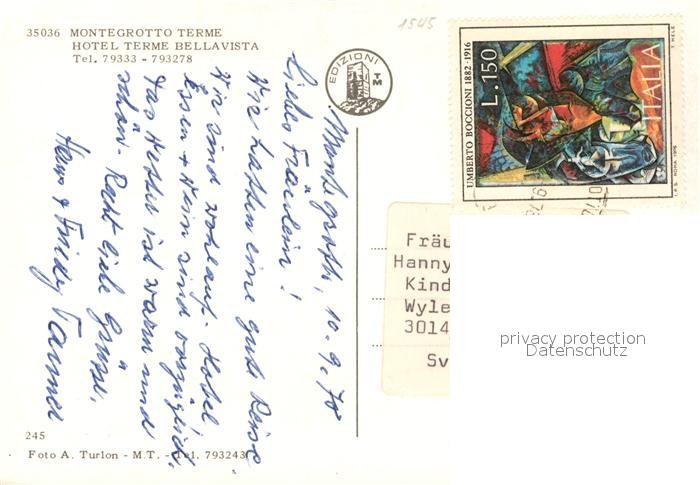 35036 MONTEGROTTO TERME
HOTEL TERME BELLAVISTA
Tel. 79333 - 793278
1545
EDIZIONI
TM
UMBERTO BOCCIONI 1882-1916
L.150
ITALIA
I.P.S. ROMA 1976
Montegrotto, 10.9.78
Liebes Fräulein!
Wir hatten eine gute Reise
Wir sind wohlauf. Hotel,
Essen + Wein sind vorzüglich.
Das Wetter ist warm und
schön. Recht liebe Grüsse,
Hans + Friedy Tanner
Fräu
Hanny
Kind
Wyle
3014
Sv
privacy protection
Datenschutz
245
Foto A. Turlon - M.T. - Tel. 793243